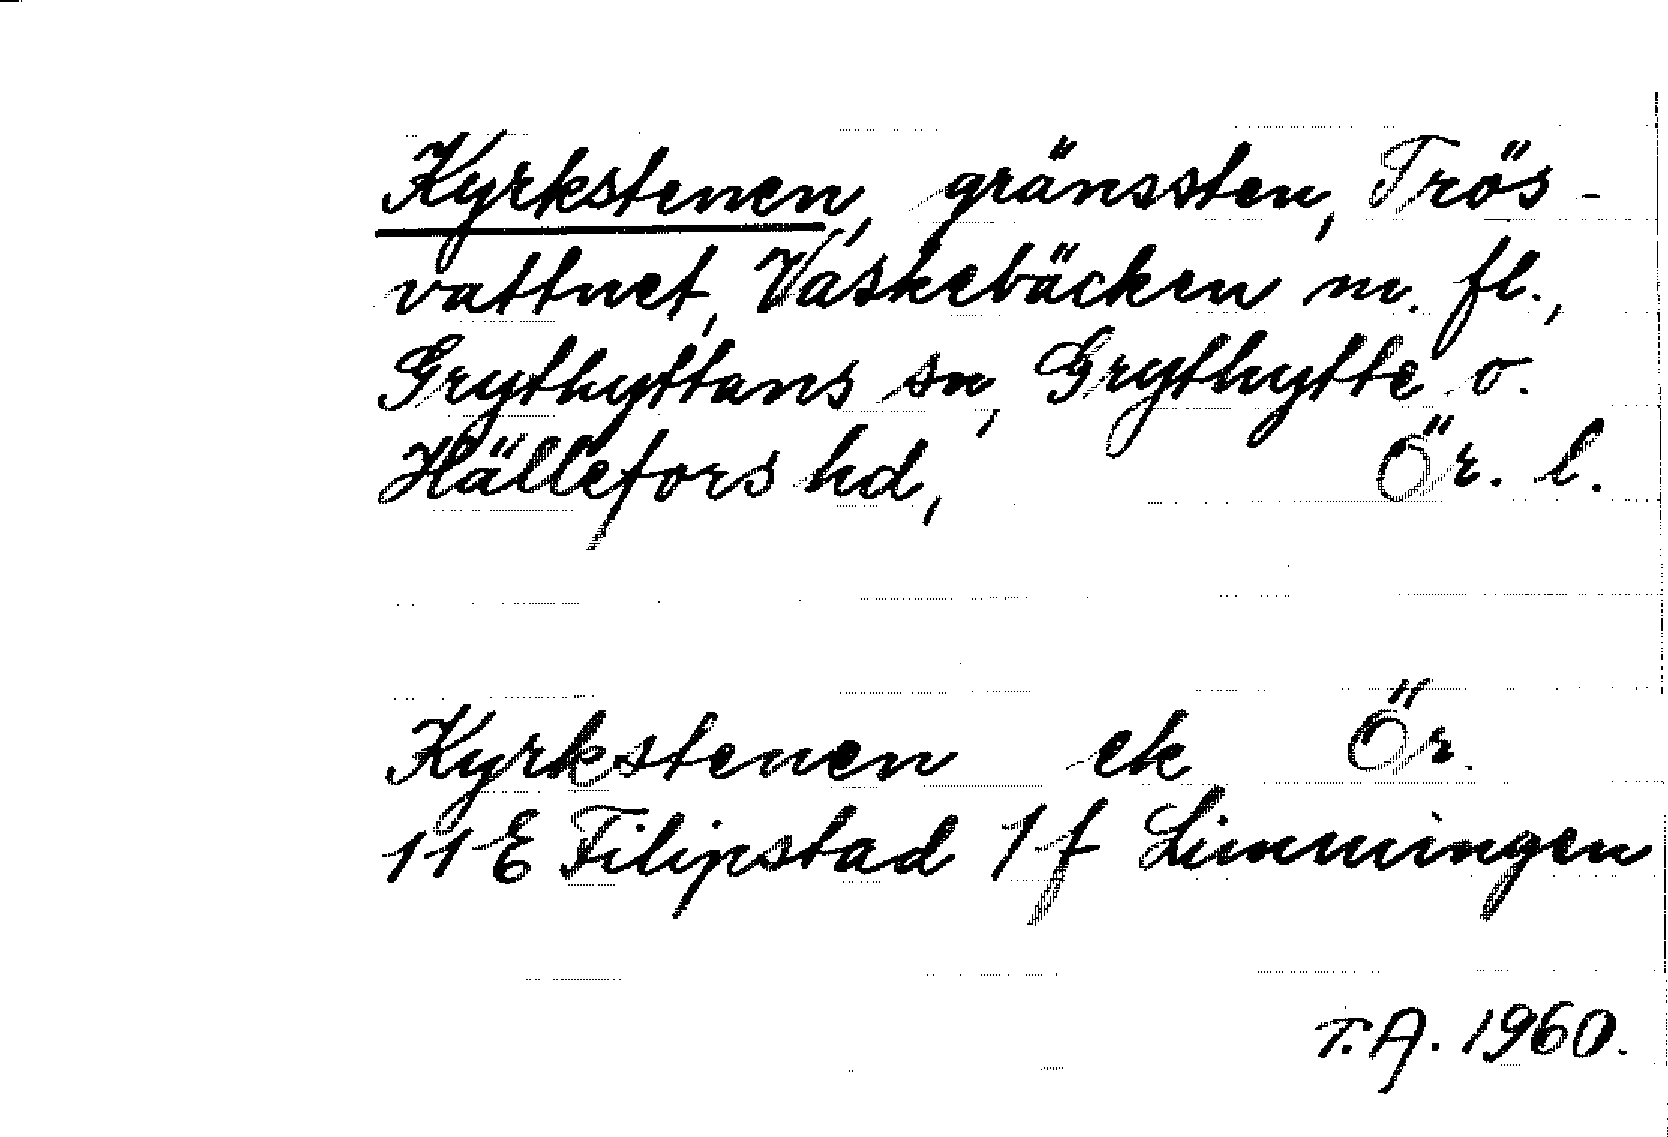 Kyrkstenen, gränssten, Trös-
vattnet, Vaskebäcken m. fl.,
Grythyttans sn, Grythytte o.
Hällefors hd, Ör. l.
Kyrkstenen ek Ör.
11 E Filipstad 1 f Limmingen
T.A. 1960.